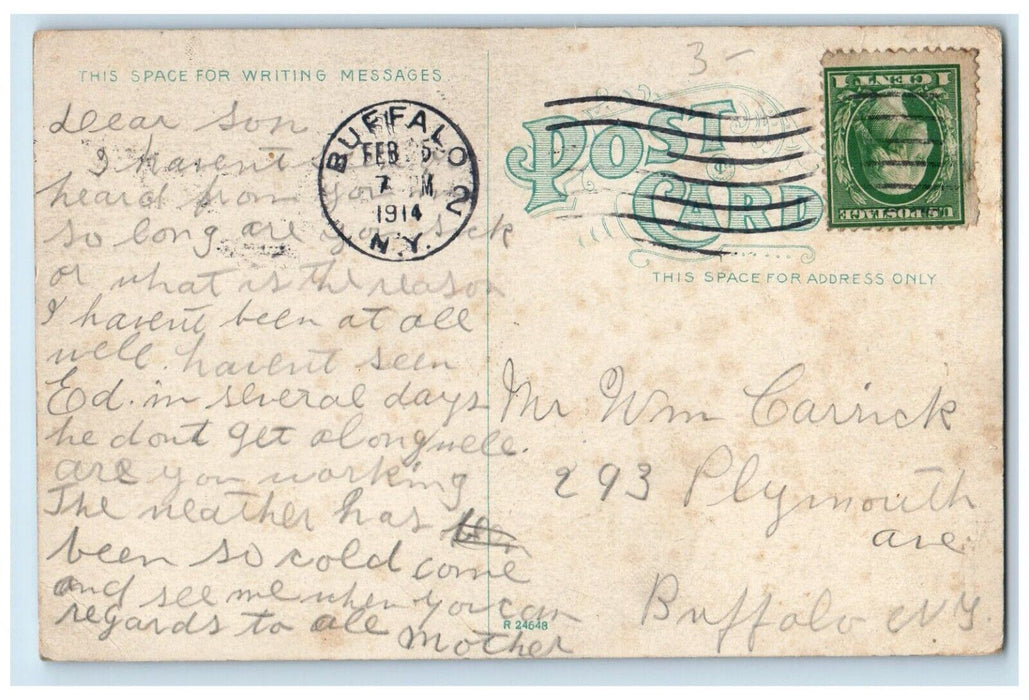 THIS SPACE FOR WRITING MESSAGES
Dear Son
I havent
heard from you
so long are you sick
or what is the reason
I havent been at all
well. havent seen
Ed. in several days
he dont get along well.
are you working
The weather has
been so cold come
and see me when you can
regards to all
Mother
BUFFALO 2
FEB
7 PM
1914
N.Y.
3-
POST CARD
THIS SPACE FOR ADDRESS ONLY
1 CENT 1
U.S. POSTAGE
Mr Wm Carrick
293 Plymouth
ave
Buffalo NY.
R 24648